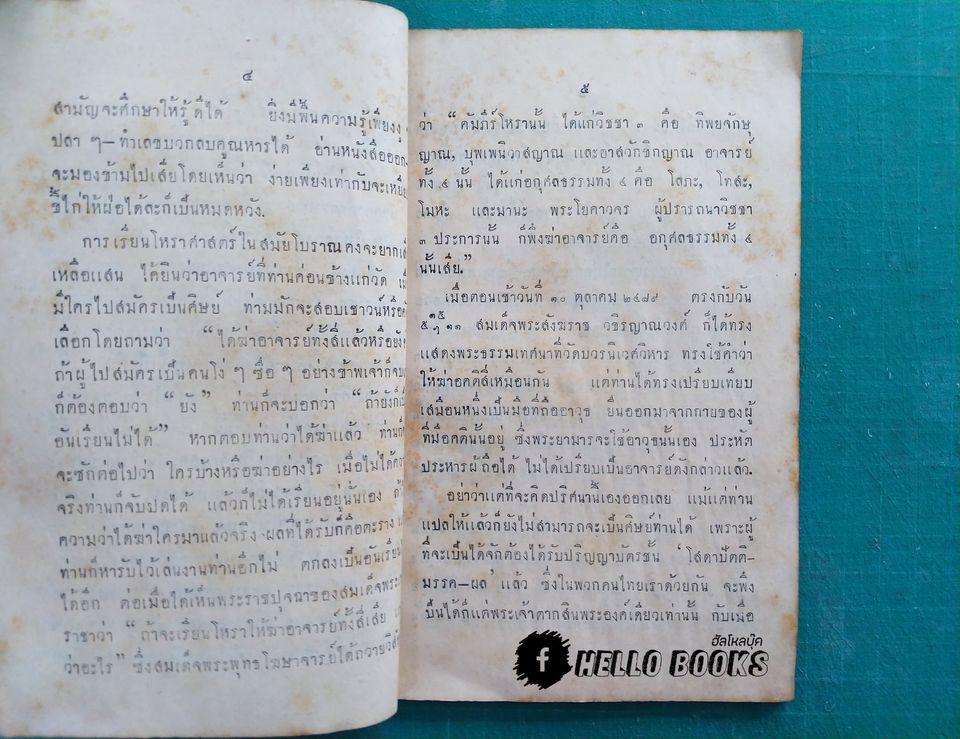 ๔
สามัญจะศึกษาให้รู้ดีได้ ยิ่งมีพื้นความรู้เพียงงู
ปลา ๆ—ทำเลขบวกลบคูณหารได้ อ่านหนังสือออก
จะมองข้ามไปเสียโดยเห็นว่า ง่ายเพียงเท่ากับจะเหยีย
ขี้ไก่ให้ฝ่อได้ละก็เป็นหมดหวัง.
การเรียนโหราศาสตร์ในสมัยโบราณคงจะยาก
เหลือแสน ได้ยินว่าอาจารย์ที่ท่านค่อนข้างแก่วัด
มีใครไปสมัครเป็นศิษย์ ท่ามมักจะสอบเชาวน์หรือ
เลือกโดยถามว่า “ได้ฆ่าอาจารย์ทั้งสี่แล้วหรือยัง
ถ้าผู้ไปสมัครเป็นคนโง่ ๆ ซื่อ ๆ อย่างข้าพเจ้าก็จบ
ก็ต้องตอบว่า “ยัง” ท่านก็จะบอกว่า “ถ้ายังก็
อันเรียนไม่ได้” หากตอบท่านว่าได้ฆ่าแล้ว ท่าน
จะซักต่อไปว่า ใครบ้างหรือฆ่าอย่างไร เมื่อไม่ได้
จริงท่านก็จับปดได้ แล้วก็ไม่ได้เรียนอยู่นั่นเอง
ความว่าได้ฆ่าใครมาแล้วจริง ผลที่ได้รับก็คือตะราง
ท่านก็หารับไว้เล่นงานท่านอีกไม่ ตกลงเป็นอันเรียน
ได้อีก ต่อเมื่อได้เห็นพระราชปุจฉาของสมเด็จพระ
ราชาว่า “ถ้าจะเรียนโหราให้ฆ่าอาจารย์ทั้งสี่เสีย
ว่าอะไร” ซึ่งสมเด็จพระพุทธโฆษาจารย์ได้ถวายวิสั
๕
ว่า “คัมภีร์โหรานั้น ได้แก่วิชชา ๓ คือ ทิพยจักษุ
ญาณ, บุพเพนิวาสญาณ และอาสวักขีกญาณ อาจารย์
ทั้ง ๔ นั้น ได้แก่อกุศลธรรมทั้ง ๔ คือ โลภะ, โทสะ,
โมหะ และมานะ พระโยคาวจร ผู้ปรารถนาวิชชา
๓ ประการนั้น ก็พึงฆ่าอาจารย์คือ อกุศลธรรมทั้ง ๔
นั้นเสีย.”
เมื่อตอนเช้าวันที่ ๑๐ ตุลาคม ๒๔๘๙ ตรงกับวัน
สมเด็จพระสังฆราช วชิรญาณวงศ์ ก็ได้ทรง
แสดงพระธรรมเทศนาที่วัดบวรนิเวศวิหาร ทรงใช้คำว่า
ให้ฆ่าอคติสี่เหมือนกัน แต่ท่านได้ทรงเปรียบเทียบ
เสมือนหนึ่งเป็นมือที่ถืออาวุธ ยื่นออกมาจากกายของผู้
ที่มีอคตินั้นอยู่ ซึ่งพระยามารจะใช้อาวุธนั้นเอง ประหัต
ประหารผู้ถือได้ ไม่ได้เปรียบเป็นอาจารย์ดังกล่าวแล้ว.
อย่าว่าแต่ที่จะคิดปริศนานั้นเองออกเลย แม้แต่ท่าน
แปลให้แล้วก็ยังไม่สามารถจะเป็นศิษย์ท่านได้ เพราะผู้
ที่จะเป็นได้จักต้องได้รับปริญญาบัตรชั้น ‘โสดาปัตติ–
มรรค—ผล’ แล้ว ซึ่งในพวกคนไทยเราด้วยกัน จะพึง
เป็นได้ก็แต่พระเจ้าตากสินพระองค์เดียวเท่านั้น กับเมื่อ
ฮัลโหลบุ๊ค
f HELLO BOOKS